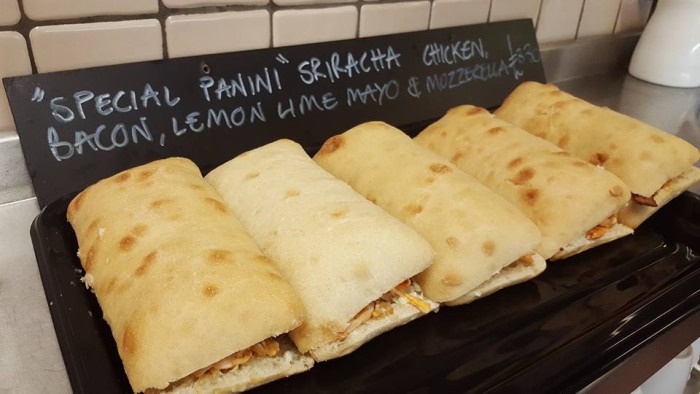 "SPECIAL PANINI" SRIRACHA CHICKEN,
BACON, LEMON LIME MAYO & MOZZERELLA